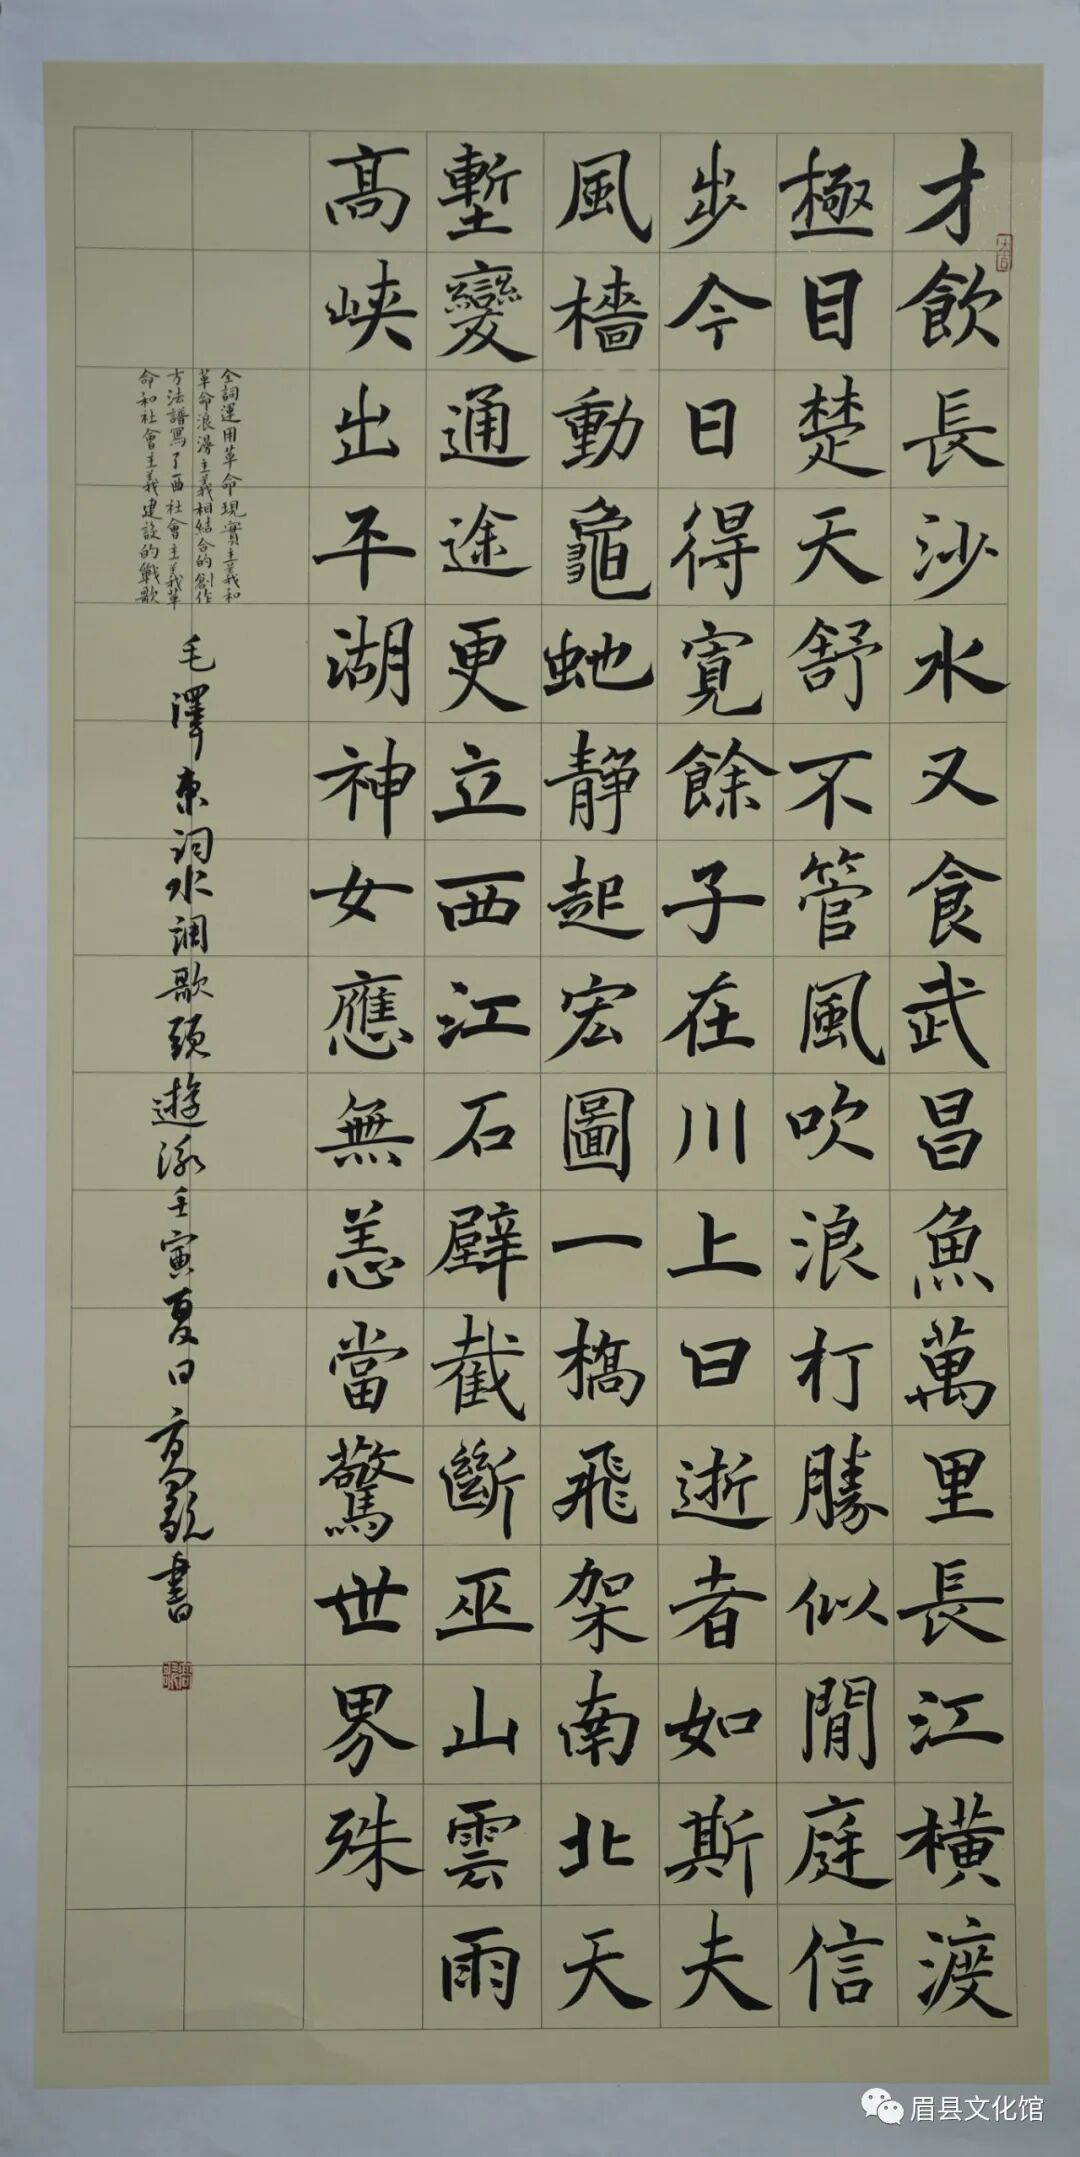 才飲長沙水又食武昌魚萬里長江橫渡
極目楚天舒不管風吹浪打勝似閒庭信
步今日得寬餘子在川上曰逝者如斯夫
風檣動龜虵靜起宏圖一橋飛架南北天
塹變通途更立西江石壁截斷巫山雲雨
髙峽出平湖神女應無恙當驚世界殊
全詞運用革命現實主義和
革命浪漫主義相結合的創作
方法譜寫了一曲社會主義革
命和社會主義建設的戰歌
毛澤東詞水調歌頭遊泳壬寅夏日高書
眉县文化馆